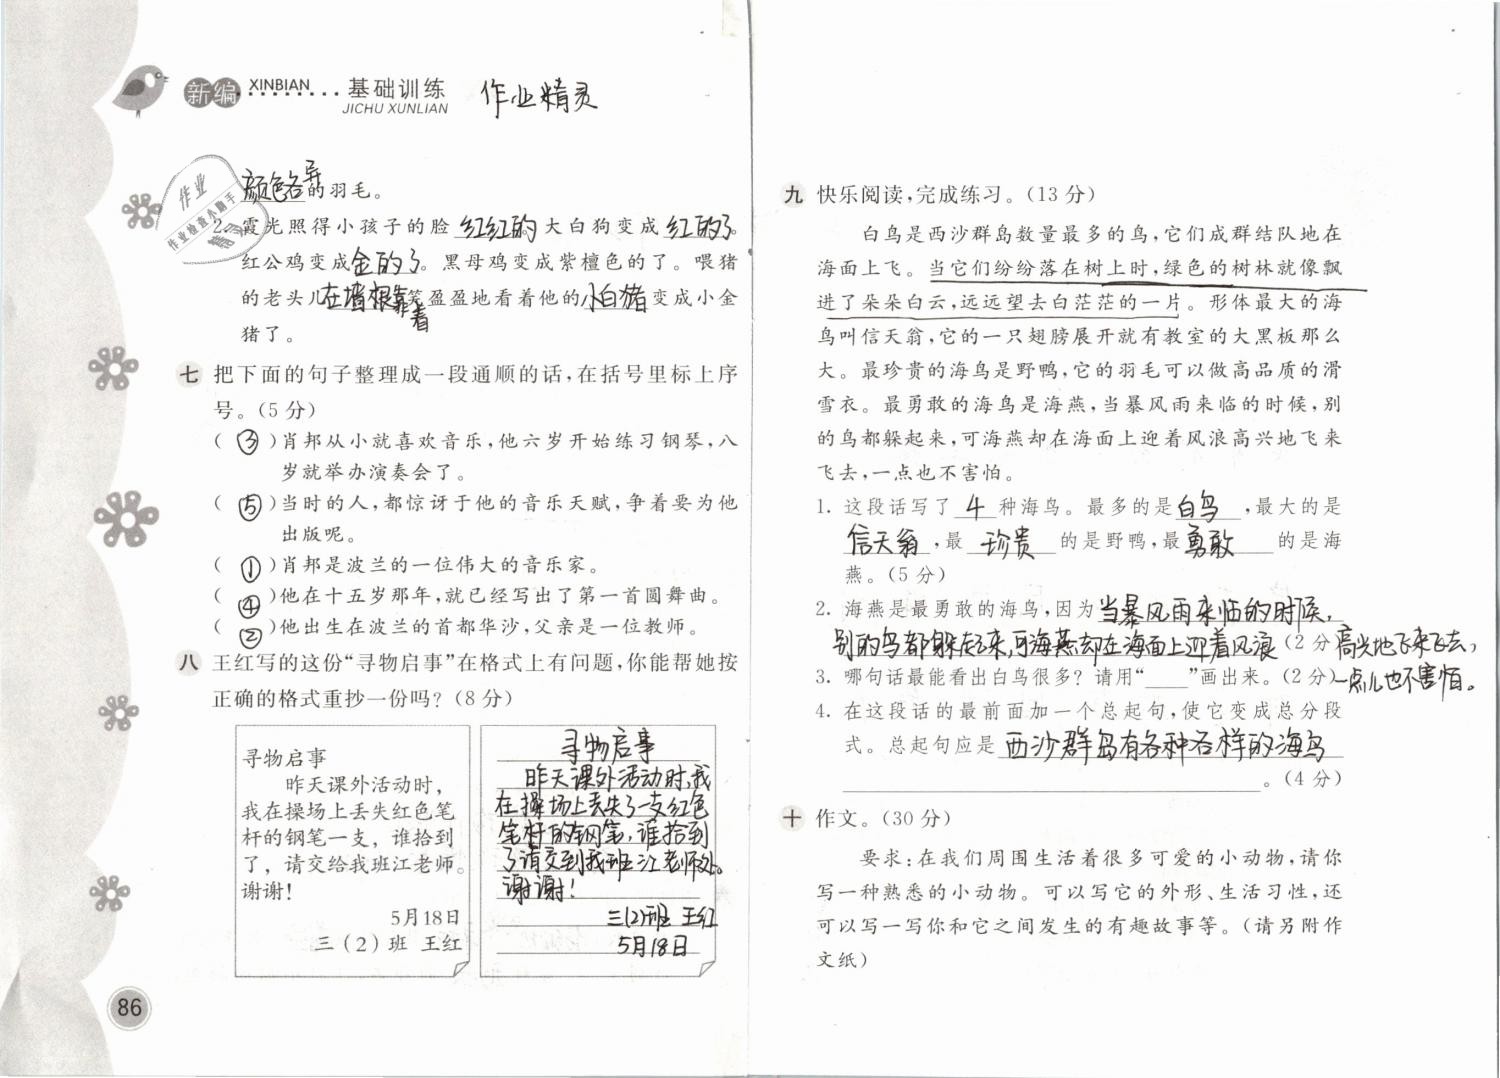 新编 XINBIAN 基础训练 作业精灵
JICHU XUNLIAN
作业
作业检查小助手
精灵
颜色各异的羽毛。
2. 霞光照得小孩子的脸红红的。大白狗变成红的了。
红公鸡变成金的了。黑母鸡变成紫檀色的了。喂猪
的老头儿在墙根靠着笑盈盈地看着他的小白猪变成小金
猪了。
七 把下面的句子整理成一段通顺的话,在括号里标上序
号。(5分)
(③)肖邦从小就喜欢音乐,他六岁开始练习钢琴,八
岁就举办演奏会了。
(⑤)当时的人,都惊讶于他的音乐天赋,争着要为他
出版呢。
(①)肖邦是波兰的一位伟大的音乐家。
(④)他在十五岁那年,就已经写出了第一首圆舞曲。
(②)他出生在波兰的首都华沙,父亲是一位教师。
八 王红写的这份“寻物启事”在格式上有问题,你能帮她按
正确的格式重抄一份吗?(8分)
寻物启事
昨天课外活动时,
我在操场上丢失红色笔
杆的钢笔一支，谁拾到
了，请交给我班江老师。
谢谢!
5月18日
三（2）班 王红
寻物启事
昨天课外活动时,我
在操场上丢失了一支红色
笔杆的钢笔,谁拾到
了请交到我班江老师处。
谢谢!
三(2)班 王红
5月18日
86
九 快乐阅读,完成练习。(13分)
白鸟是西沙群岛数量最多的鸟,它们成群结队地在
海面上飞。当它们纷纷落在树上时,绿色的树林就像飘
进了朵朵白云,远远望去白茫茫的一片。形体最大的海
鸟叫信天翁,它的一只翅膀展开就有教室的大黑板那么
大。最珍贵的海鸟是野鸭,它的羽毛可以做高品质的滑
雪衣。最勇敢的海鸟是海燕,当暴风雨来临的时候,别
的鸟都躲起来,可海燕却在海面上迎着风浪高兴地飞来
飞去,一点也不害怕。
1. 这段话写了 4 种海鸟。最多的是白鸟,最大的是
信天翁,最 珍贵 的是野鸭,最勇敢 的是海
燕。(5分)
2. 海燕是最勇敢的海鸟,因为当暴风雨来临的时候,
别的鸟都躲起来,可海燕却在海面上迎着风浪(2分)高兴地飞来飞去,
3. 哪句话最能看出白鸟很多? 请用“____”画出来。(2分)一点儿也不害怕。
4. 在这段话的最前面加一个总起句,使它变成总分段
式。总起句应是 西沙群岛有各种各样的海鸟
。(4分)
十 作文。(30分)
要求:在我们周围生活着很多可爱的小动物,请你
写一种熟悉的小动物。可以写它的外形、生活习性,还
可以写一写你和它之间发生的有趣故事等。(请另附作
文纸)